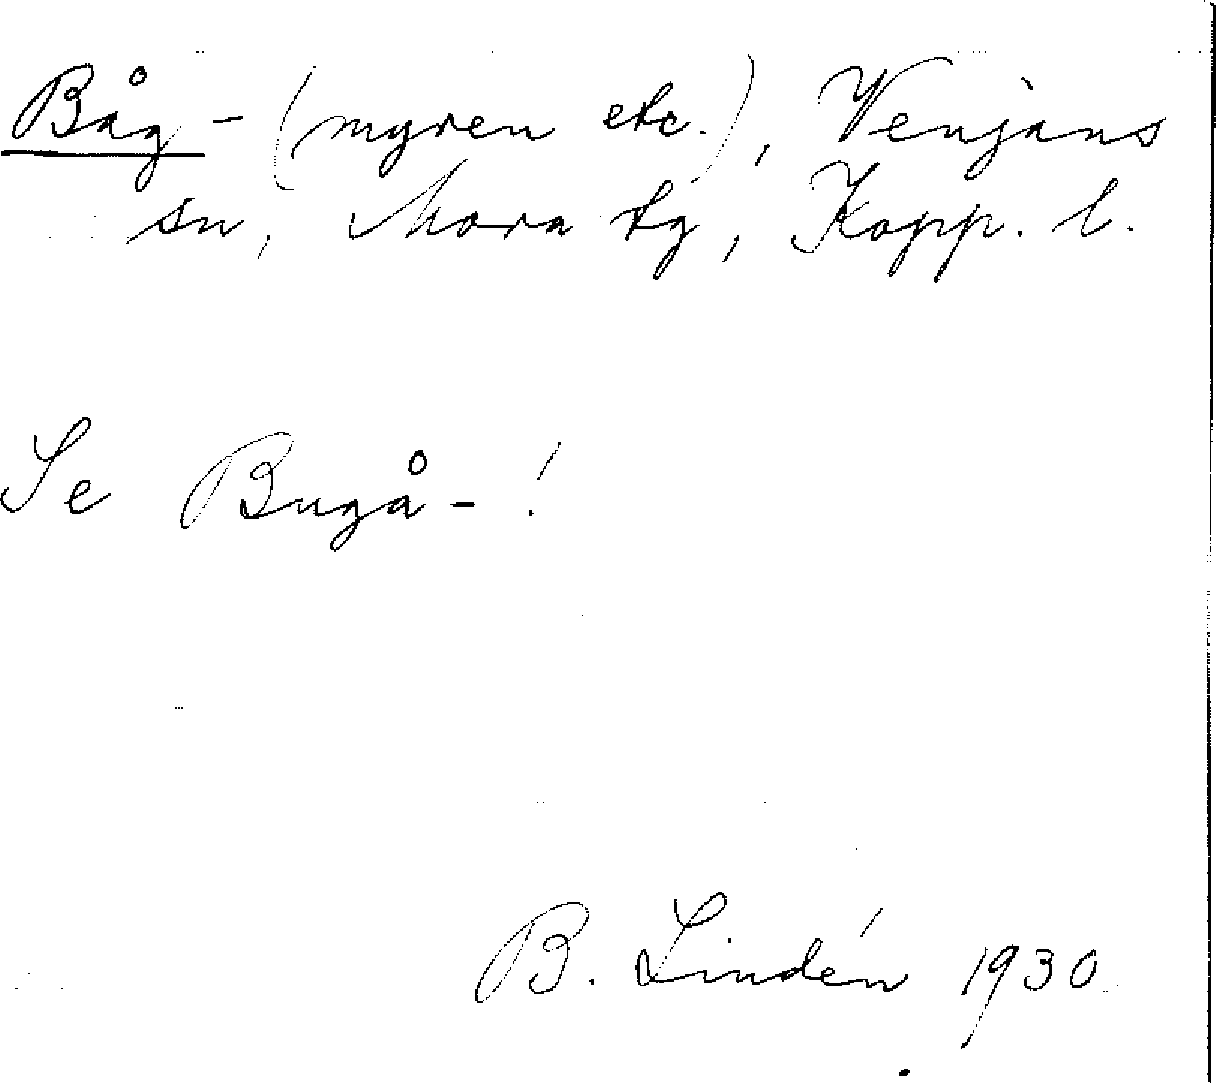 Båg - (myren etc.), Venjans
sn, Mora tg, Kopp. l.
Se Bugå - !
B. Lindén 1930